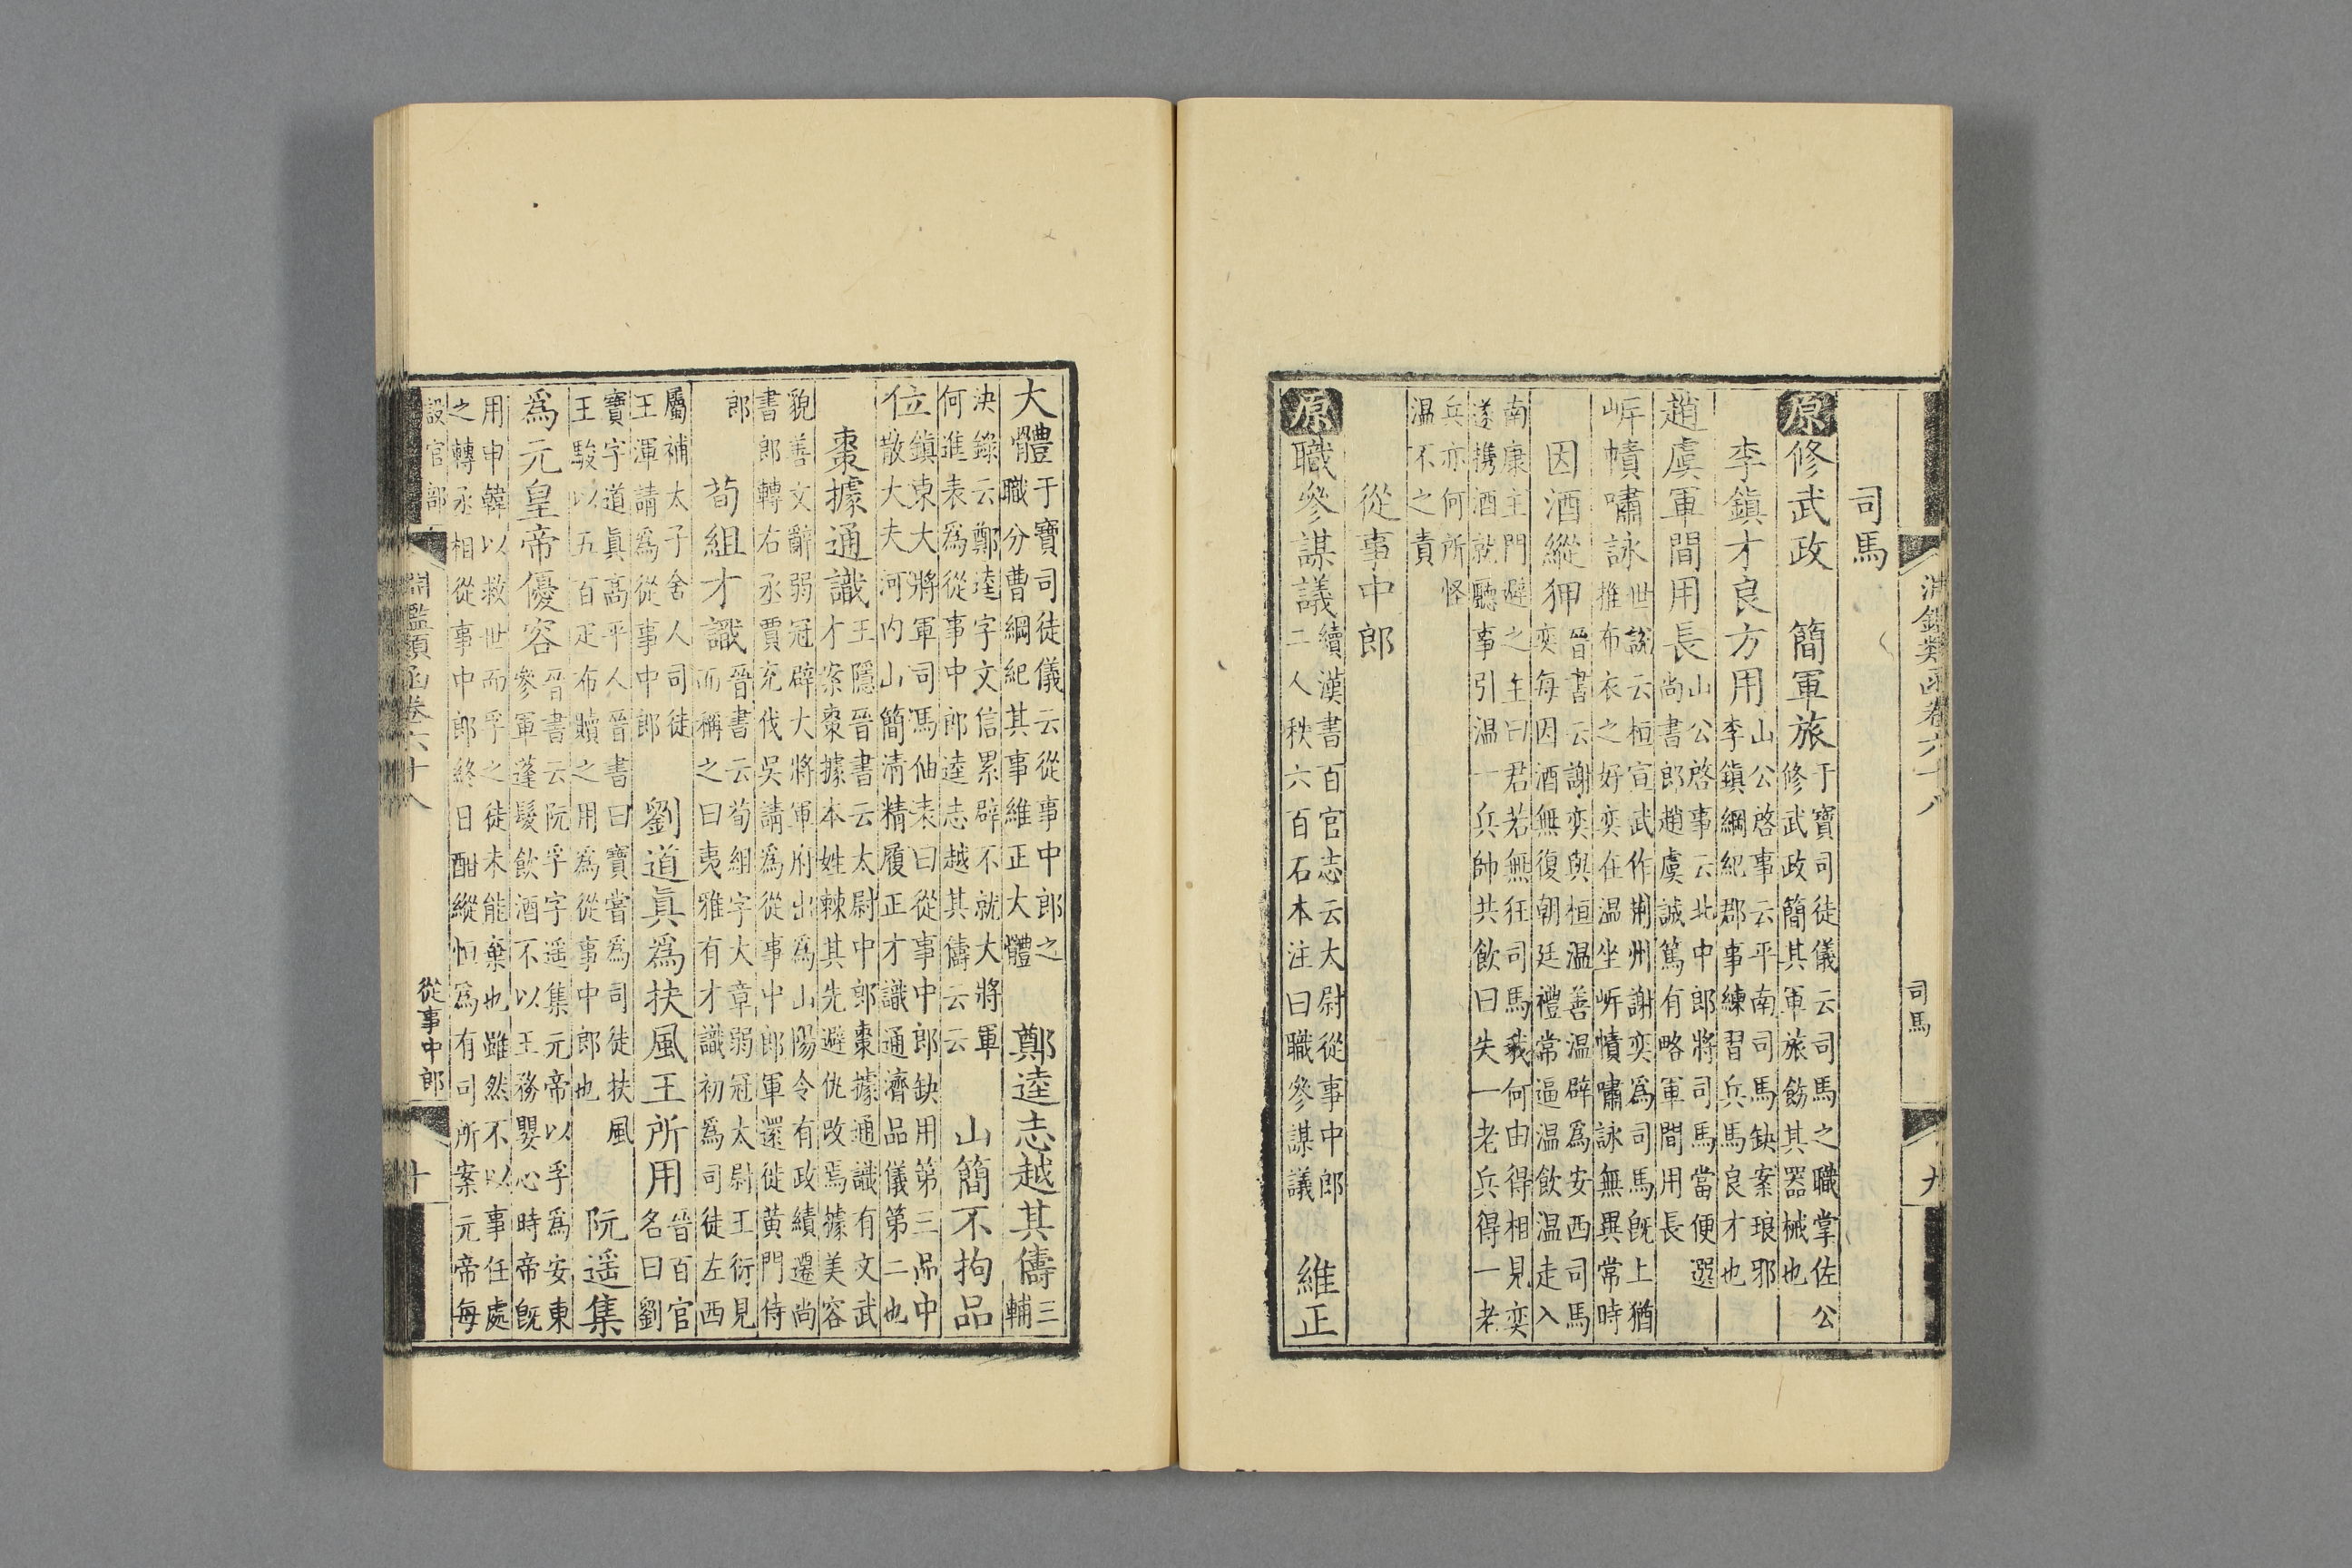 淵鑑類函卷六十八 司馬 九
司馬
原修武政 簡軍旅于寶司徒儀云司馬之職掌佐公
修武政簡其軍旅飭其器械也
李鎮才良方用山公啓事云平南司馬缺案琅邪
李鎮綱紀郡事練習兵馬良才也
趙虞軍間用長山公啓事云北中郎將司馬當便選
尚書郎趙虞誠篤有略軍間用長
岍幘嘯詠世說云桓宣武作荆州謝奕爲司馬旣上猶
推布衣之好奕在温坐岍幘嘯詠無異常時
因酒縱狎晉書云謝奕與桓温善温辟爲安西司馬
奕每因酒無復朝廷禮常逼温飲温走入
南康主門避之主曰君若無狂司馬我何由得相見奕
遂携酒就聽事引温一兵帥共飲曰失一老兵得一老
兵亦何所怪
温不之責
從事中郎
原職參謀議續漢書百官志云大尉從事中郎
二人秩六百石本注曰職參謀議 維正
大體于寶司徒儀云從事中郎之
職分曹綱紀其事維正大體 鄭逵志越其儔三
輔
決錄云鄭逵字文信累辟不就大將軍
何進表爲從事中郎逵志越其儔云云 山簡不拘品
位鎮東大將軍司馮仙表曰從事中郎缺用第三品中
散大夫河內山簡清精履正才識通濟品儀第二也
棗據通識王隱晉書云太尉中郎棗據通識有文武
才案棗據本姓棘其先避仇改焉據美容
貌善文辭弱冠辟大將軍府出爲山陽令有政績遷尚
書郎轉右丞賈充伐吳請爲從事中郎軍還徙黄門侍
郎
荀組才識晉書云荀組字大章弱冠太尉王衍見
而稱之曰夷雅有才識初爲司徒左西
屬補太子舍人司徒
王渾請爲從事中郎 劉道眞爲扶風王所用晉百官
名曰劉
寶字道眞高平人晉書曰寶嘗爲司徒扶風
王駿以五百疋布贖之用爲從事中郎也 阮遥集
爲元皇帝優容晉書云阮孚字遥集元帝以孚爲安東
參軍蓬髮飲酒不以王務嬰心時帝旣
用申韓以救世而孚之徒未能棄也雖然不以事任處
之轉丞相從事中郎終日酣縱恒爲有司所案元帝每
淵鑑類函卷六十八 從事中郎 十